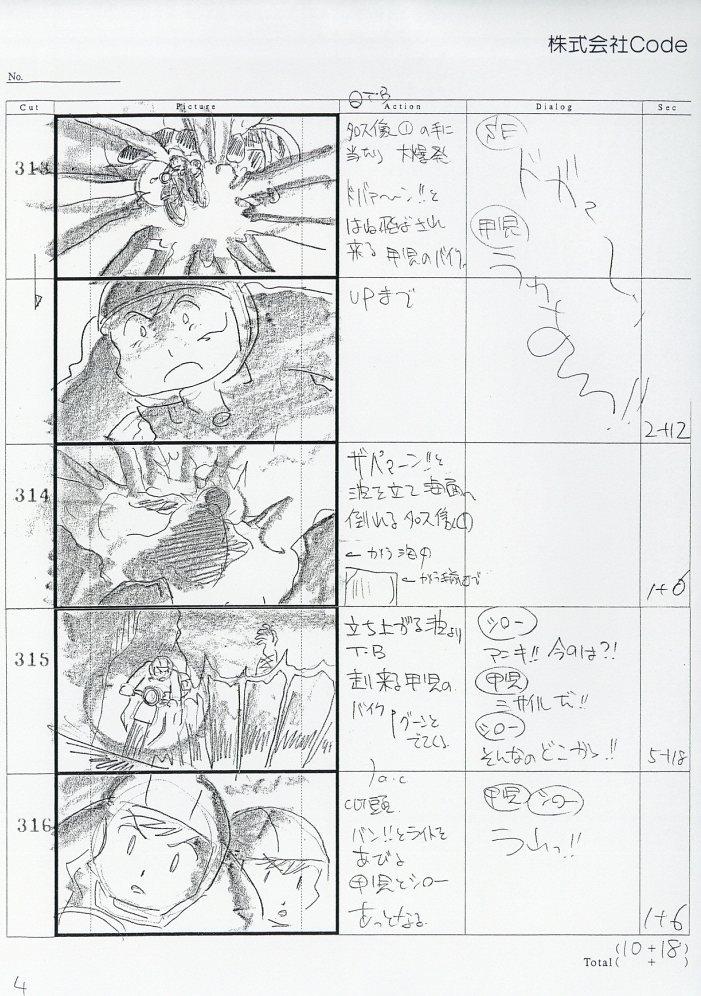 株式会社Code
No.
Cut Picture Action Dialog Sec
T.B
313
タロス像①の手に
当たり 大爆発
ドバァ〜ン!!と
はね飛ばされ
来る 甲児のバイク
SE
ドガァ〜
甲児
うわぁあ〜!!
UPまで
2+12
314
ザバァーン!!と
波を立て海面へ
倒れる タロス像①
1+0
315
立ち上がる波より
T.B
走り来る甲児の
バイク
グーンと
でてくる
シロー
アニキ!! 今のは?!
甲児
ミサイルだ!!
シロー
そんなのどこから!!
5+18
a.c
316
CUT頭
バン!!とライトを
あびる
甲児とシロー
あっとなる
甲児 シロー
うわっ!!
1+6
Total (10+18)
( + )
4